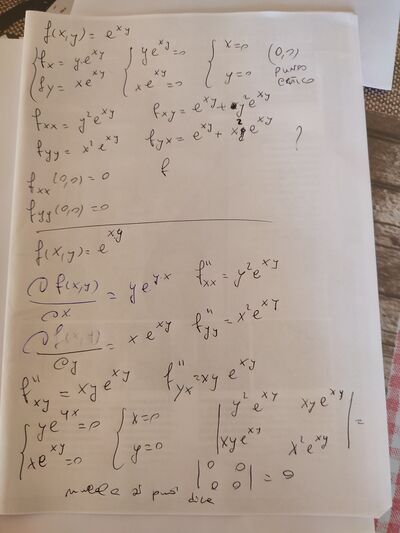 f(x,y) = e^{xy}
{ fx = y e^{xy} { y e^{xy} = 0 { x = 0 (0,0)
{ fy = x e^{xy} { x e^{xy} = 0 { y = 0 PUNTO
CRITICO
fxx = y² e^{xy} fxy = e^{xy} + y² e^{xy}
fyy = x² e^{xy} fyx = e^{xy} + x² e^{xy} ?
fxx (0,0) = 0 f
fyy (0,0) = 0
f(x,y) = e^{xy}
∂f(x,y)/∂x = y e^{yx} f''xx = y² e^{xy}
∂f(x,y)/∂y = x e^{xy} f''yy = x² e^{xy}
f''xy = xy e^{xy} f''yx = xy e^{xy}
{ y e^{yx} = 0 { x = 0 | y² e^{xy} xy e^{xy} | =
{ x e^{xy} = 0 { y = 0 | xy e^{xy} x² e^{xy} |
| 0 0 |
| 0 0 | = 0
si può dire